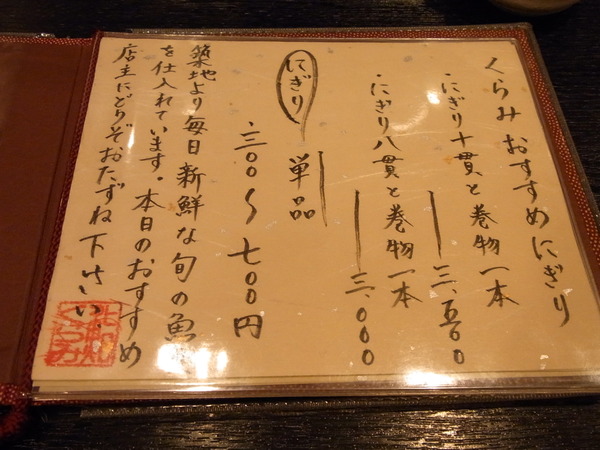 くらみ おすすめにぎり
・にぎり十貫と巻物一本
三.五〇〇
・にぎり八貫と巻物一本
三.〇〇〇
にぎり 単品
三〇〇〜七〇〇円
築地より毎日新鮮な旬の魚
を仕入れています。本日のおすすめ
店主にどうぞおたずね下さい